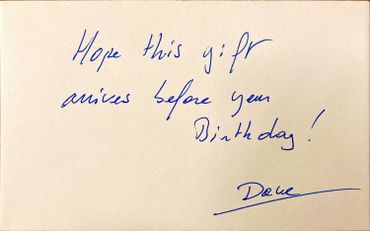 Hope this gift
arrives before your
Birthday!
Dave